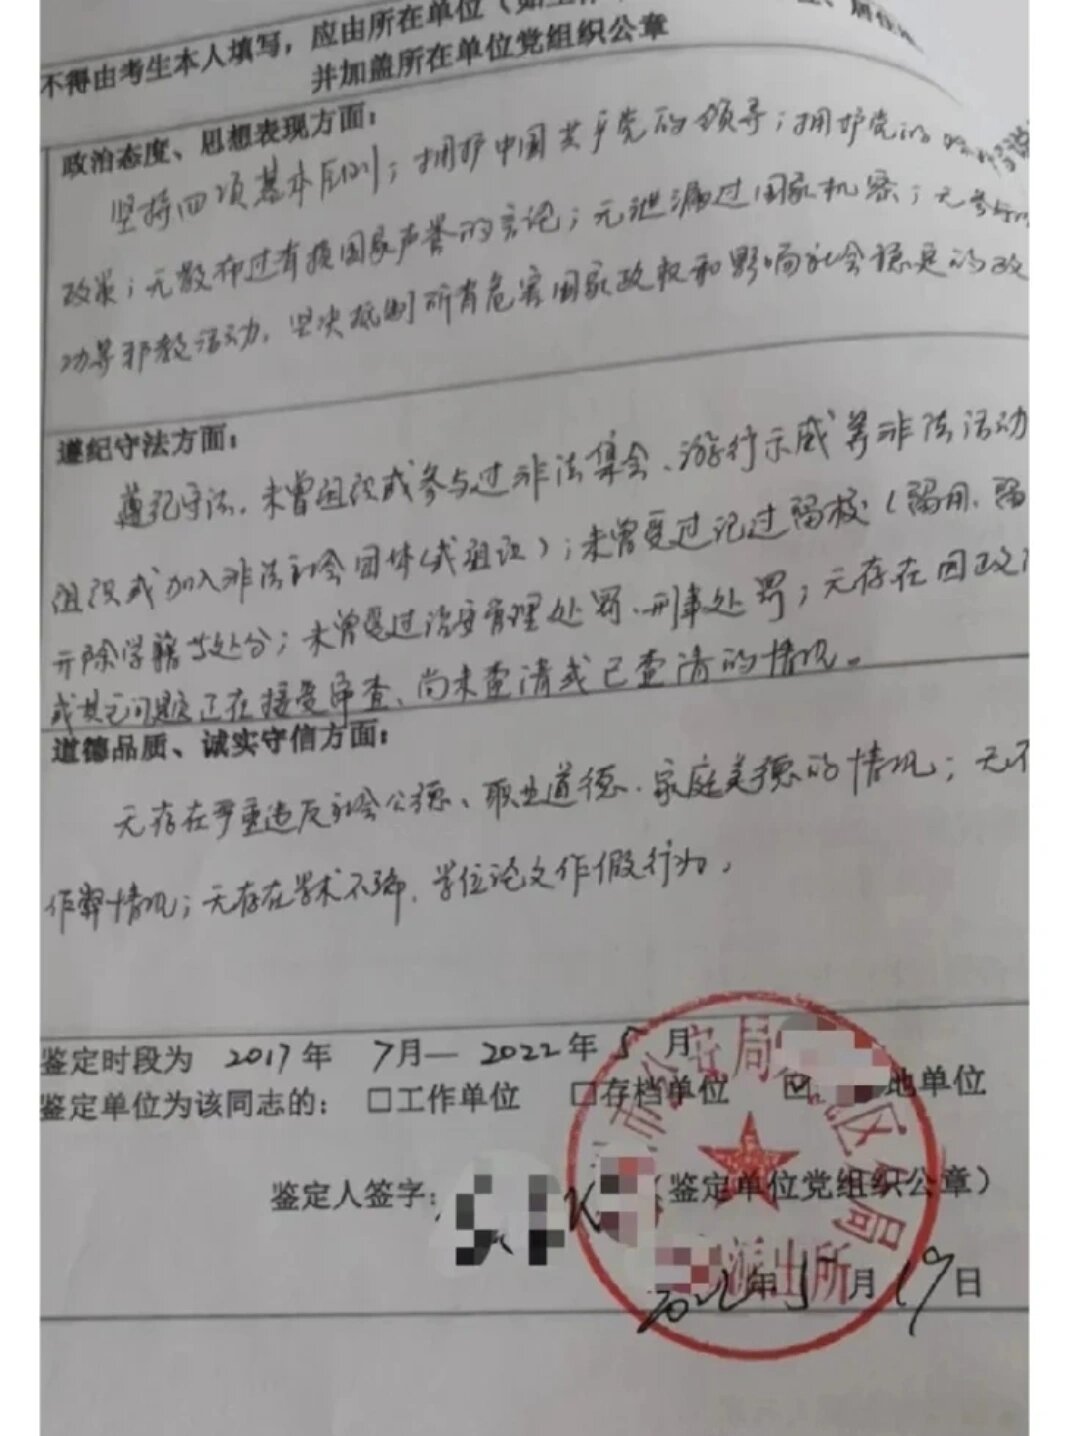 不得由考生本人填写，应由所在单位（如工作
并加盖所在单位党组织公章
政治态度、思想表现方面：
坚持四项基本原则；拥护中国共产党的领导；拥护党的
政策；无散布过有损国家声誉的言论；无泄漏过国家机密；无参与
功等邪教活动，坚决抵制所有危害国家政权和影响社会稳定的政
遵纪守法方面：
遵纪守法，未曾组织或参与过非法集会、游行示威等非法活动
组织或加入非法社会团体（或组织）；未曾受过记过留校（留用、留
开除学籍等处分；未曾受过治安管理处罚、刑事处罚；无存在因政
或其它问题正在接受审查、尚未查清或已查清的情况。
道德品质、诚实守信方面：
无存在严重违反社会公德、职业道德、家庭美德的情况；无不
作弊情况；无存在学术不端、学位论文作假行为。
鉴定时段为 2017年 7月—2022年5月
鉴定单位为该同志的：□工作单位 □存档单位 ☑地单位
鉴定人签字： （鉴定单位党组织公章）
2022年5月19日
市公安局 区分局
派出所